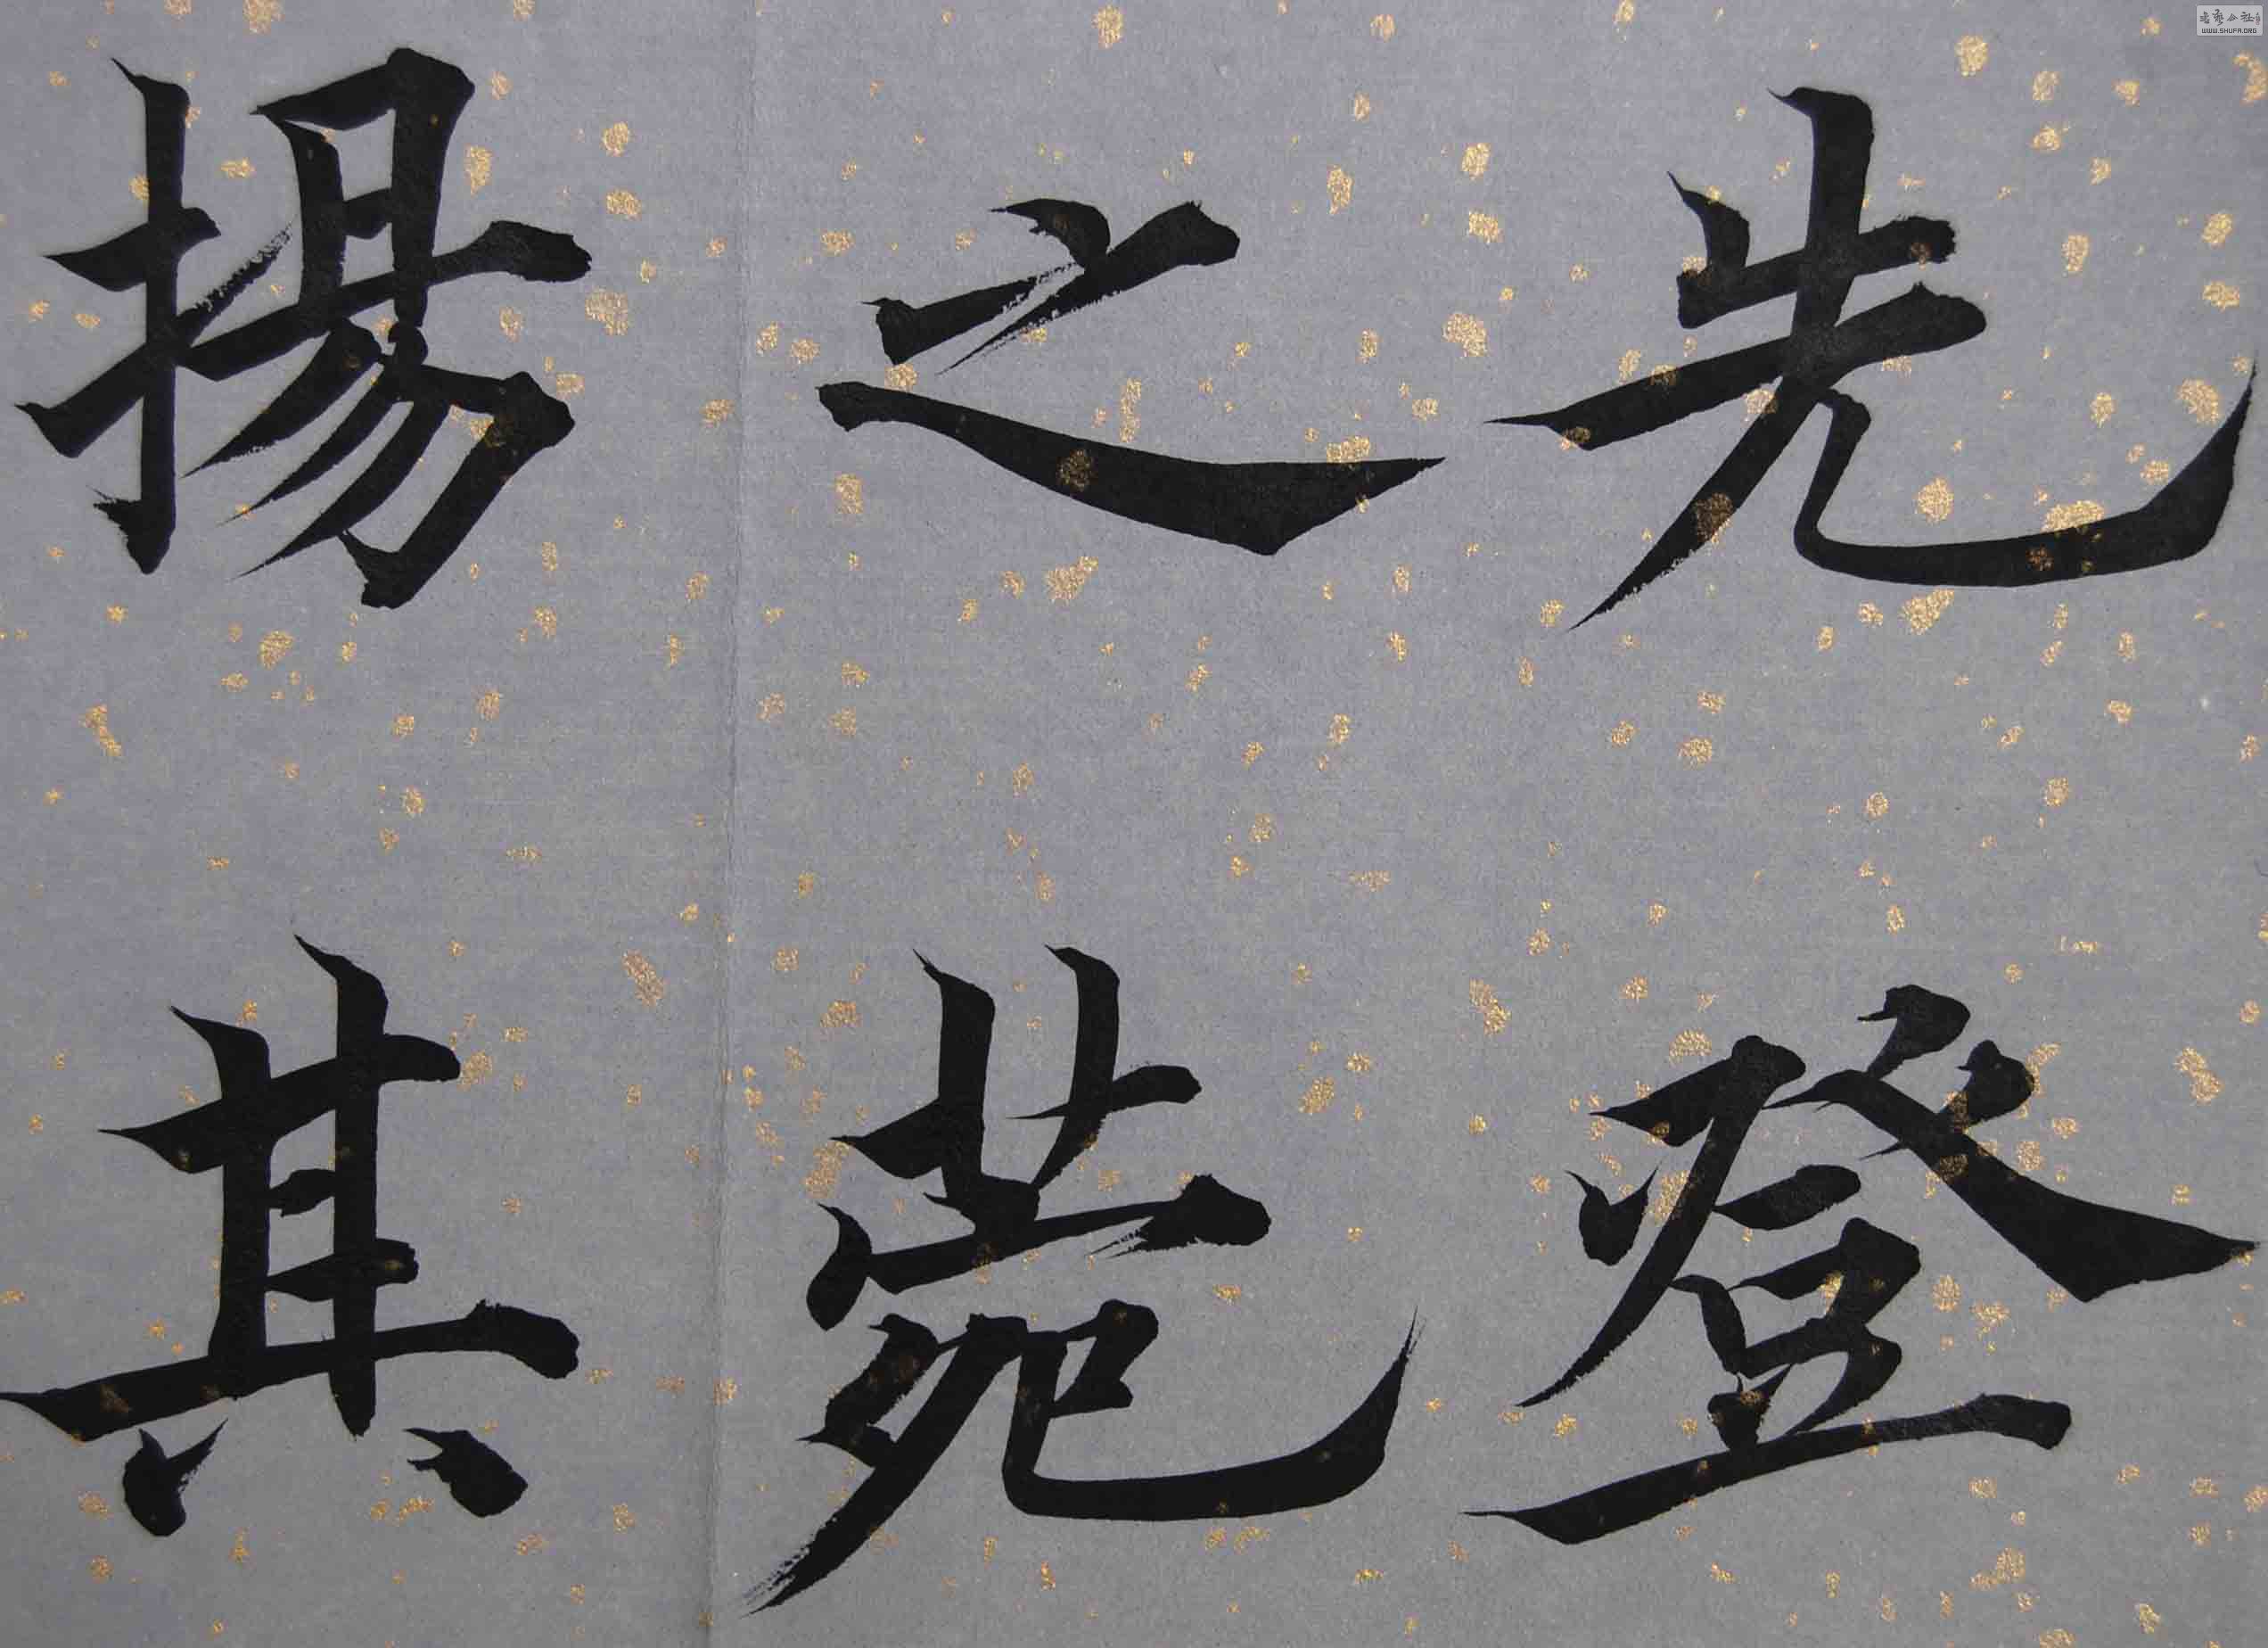 先登
之苑
揚其
书艺公社
WWW.SHUFA.ORG